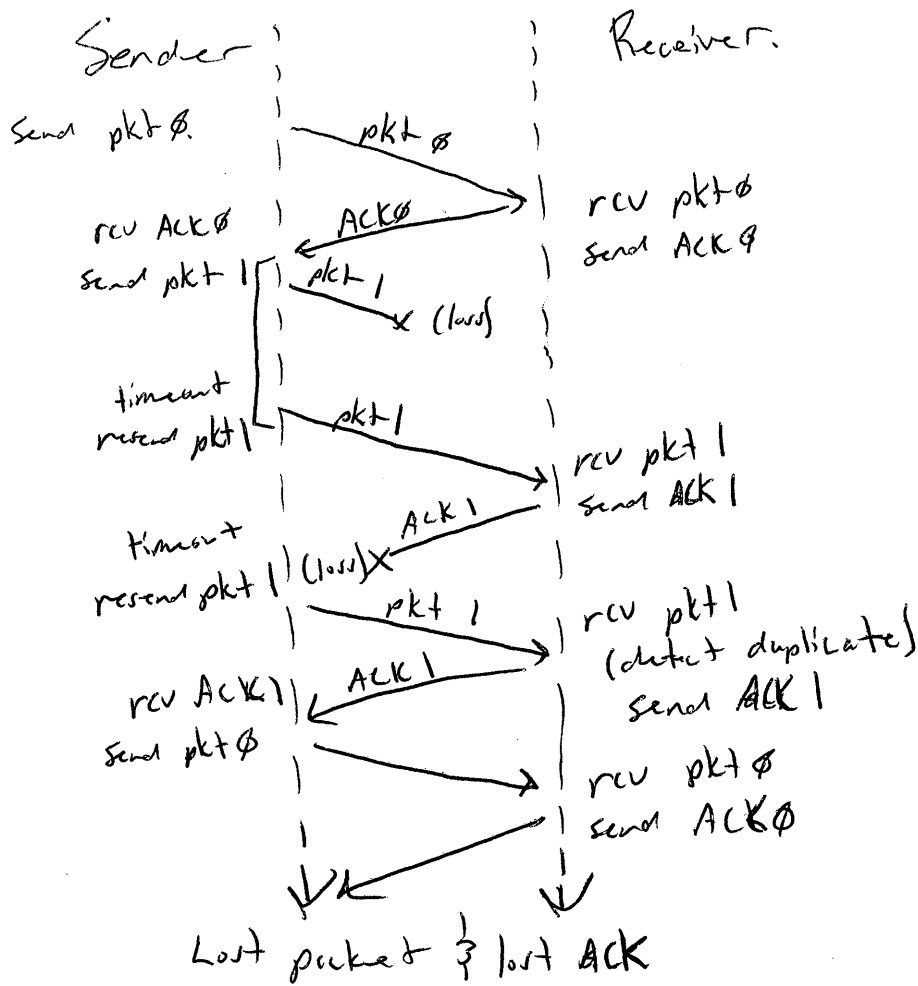 Sender
Receiver.
send pkt0.
pkt 0
rcv pkt0
send ACK0
ACK0
rcv ACK0
send pkt 1
pkt 1
(loss)
timeout
resend pkt 1
pkt 1
rcv pkt 1
send ACK 1
ACK 1
(loss)
timeout
resend pkt 1
pkt 1
rcv pkt1
(detect duplicate)
send ACK 1
ACK 1
rcv ACK 1
send pkt0
rcv pkt0
send ACK0
Lost packet & lost ACK